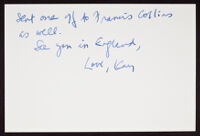 Sent one off to Francis Collins
as well.
See you in England,
Love, Kay